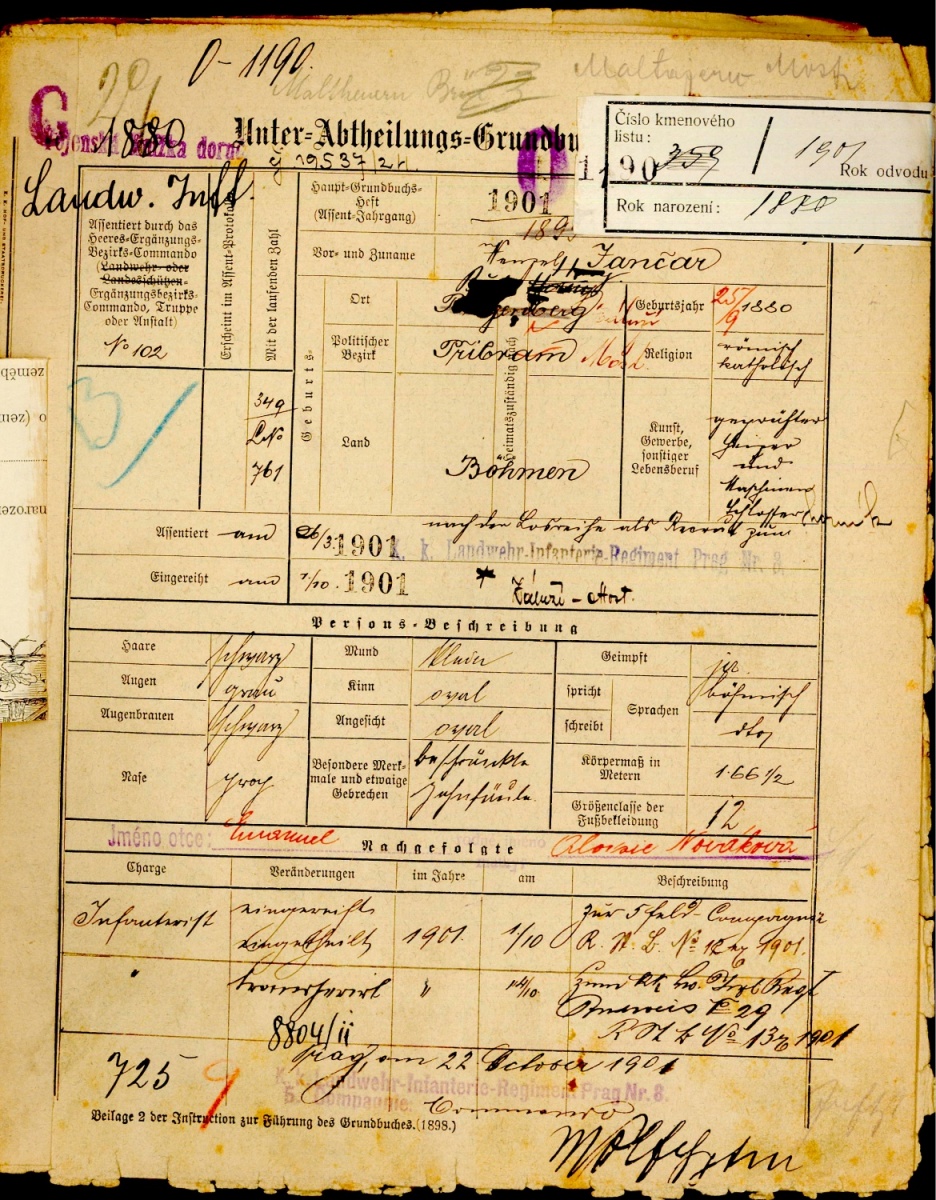 0-1190.
Malthenern
Maltayerw Most
G
1880
Unter=Abtheilungs=Grundbu
19537/21.
Číslo kmenového
listu:
359 / 1901
Rok odvodu
Rok narození: 1880
0
1190
Landw. Inft.
Assentiert durch das
Heeres=Ergänzungs=
Bezirks=Commando
(Landwehr= oder
Landesschützen=
Ergänzungsbezirks=
Commando, Truppe
oder Anstalt)
No 102
Erscheint im Assent=Protokolle
Mit der laufenden Zahl
349
LNo
761
Haupt=Grundbuchs=
Heft
(Assent=Jahrgang)
1901
Vor= und Zuname
Wenzel Jančar
Geburts=
Ort
Heimatszuständig nach
Geburtsjahr
25/9 1880
Politischer
Bezirk
Přibram
Most
Religion
römisch
katholisch
Land
Böhmen
Kunst,
Gewerbe,
sonstiger
Lebensberuf
geprüfter
Heizer
und
Maschinen
schlosser
Assentiert am 26/3. 1901
nach der Losreihe als Recrut zum
k. k. Landwehr-Infanterie-Regiment Prag Nr. 8.
Eingereiht am 1/10. 1901
Záluží - Most.
Persons=Beschreibung
Haare schwarz
Mund klein
Geimpft ja
Augen grau
Kinn oval
spricht
schreibt
Sprachen
böhmisch
dto
Augenbrauen schwarz
Angesicht oval
Nase groß
Besondere Merk=
male und etwaige
Gebrechen
beschränkte
Zahnfäule.
Körpermaß in
Metern
1·66 1/2
Größenclasse der
Fußbekleidung
12
Jméno otce: Emanuel
Nachgefolgte
Aloisie Nováková
Charge
Veränderungen
im Jahre
am
Beschreibung
Infanterist
eingereiht
eingetheilt
1901.
1/10
zur 5 Feld-Compagnie
1901.
"
transferirt
"
29
1901
8804/ii
Prag, am 22 October 1901
k. k. Landwehr-Infanterie-Regiment Prag Nr. 8.
5. Compagnie.
Commando
725
Beilage 2 der Instruction zur Führung des Grundbuches. (1898.)